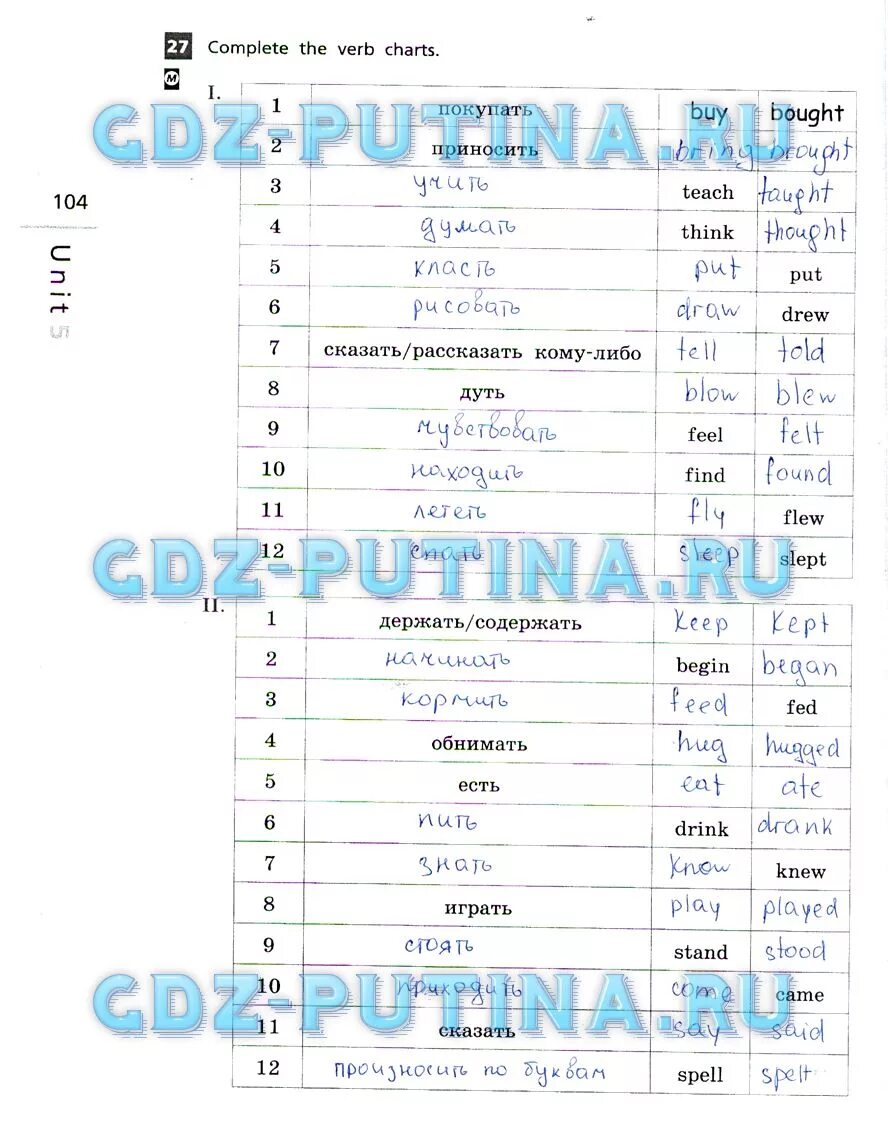 27 Complete the verb charts.
M
I.
1 покупать buy bought
GDZ-PUTINA.RU
2 приносить bring brought
3 учить teach taught
104
4 думать think thought
Unit 5
5 класть put put
6 рисовать draw drew
7 сказать/рассказать кому-либо tell told
8 дуть blow blew
9 чувствовать feel felt
10 находить find found
11 лететь fly flew
12 спать sleep slept
GDZ-PUTINA.RU
II.
1 держать/содержать keep kept
2 начинать begin began
3 кормить feed fed
4 обнимать hug hugged
5 есть eat ate
6 пить drink drank
7 знать know knew
8 играть play played
9 стоять stand stood
10 приходить come came
GDZ-PUTINA.RU
11 сказать say said
12 произносить по буквам spell spelt